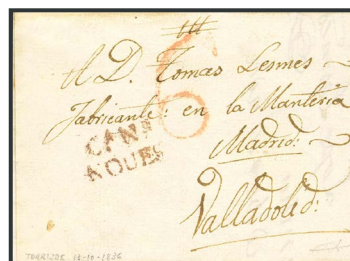 A D. Tomas Lesmes
Fabricante: en la Manteria
Madrid:
Valladolid:
TORRIJOS 18-10-1836